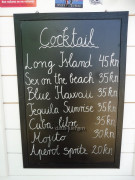 Cocktail
Long Island 45kn
Sex on the beach 35kn
Blue Hawaii 35kn
Tequila Sunrise 35kn
Cuba libre 35kn
Mojito 30kn
Aperol spritz 20kn